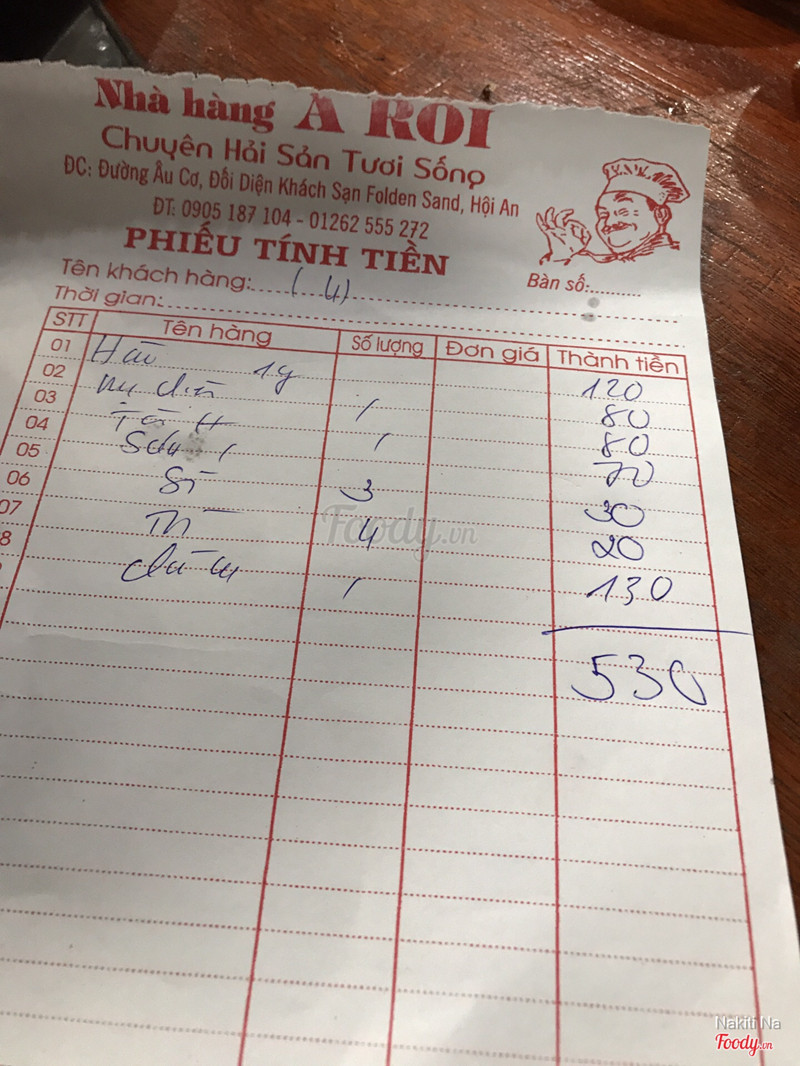 Nhà hàng A ROI
Chuyên Hải Sản Tươi Sống
ĐC: Đường Âu Cơ, Đối Diện Khách Sạn Folden Sand, Hội An
ĐT: 0905 187 104 - 01262 555 272
PHIẾU TÍNH TIỀN
Tên khách hàng: (4) Bàn số:
Thời gian:
STT Tên hàng Số lượng Đơn giá Thành tiền
01 Hàu 120
02 1 80
03 1 80
04 70
05 3 30
06 4 20
07 1 130
8
530
Foody.vn
Nakiti Na
Foody.vn